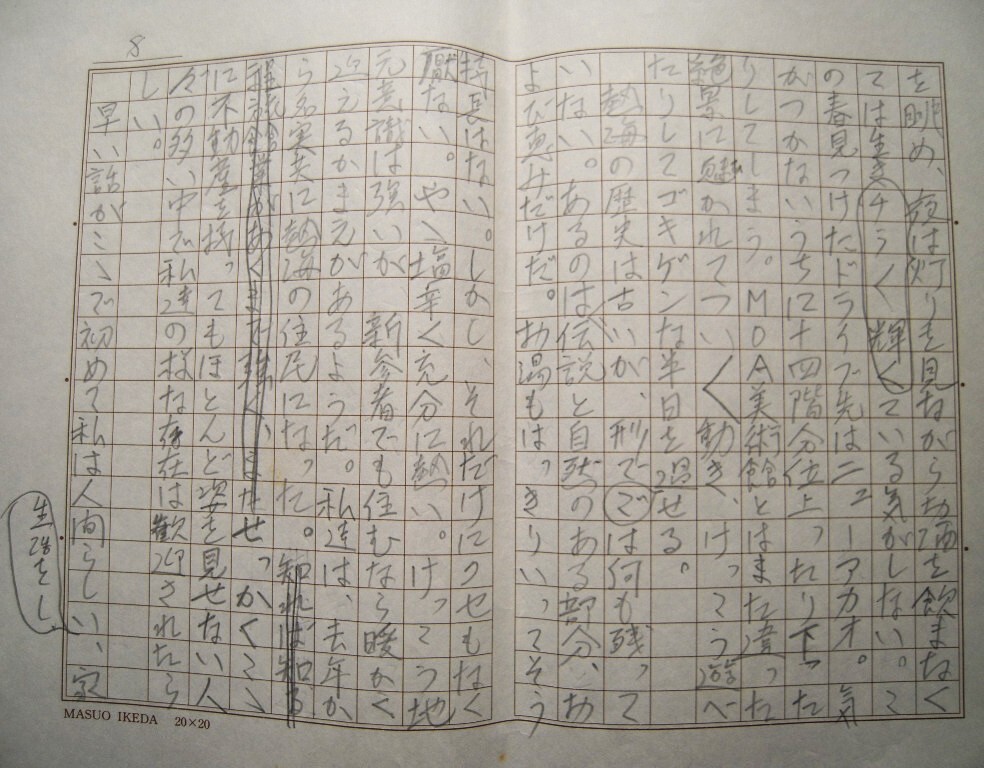 8
を眺め、夜は灯りを見ながらお酒を飲まなく
ては生き
チラ〱輝く
ている気がしない。こ
の春見つけたドライブ先はニューアカオ。気
がつかないうちに十四階分位上ったり下った
りしてしまう。MOA美術館とはまた違った
絶景に魅かれてついく動き、けってう遊べ
たりしてゴキゲンな半日を過せる。
熱海の歴史は古いが、形ではでは何も残って
いない。あるのは伝説と自然のある部分、お
よび恵みだけだ。お湯もはっきりいってそう
特長はない。しかし、それだけにクセもなく
厭な
い。やゝ塩辛く充分に熱い。けってう地
元意識は強いが新参者でも住むなら暖かく
迎えるかまえがあるようだ。私達は、去年か
ら名実共に熱海の住民になった。知れば知る
程
があくまで
ませっかくこゝ
に不動産を持ってもほとんど姿を見せない人
々の多い中で私達の様な存在は歓迎されたら
しい。
早い話がこゝで初めて私は人間らしい、家
生活をし
MASUO IKEDA 20×20